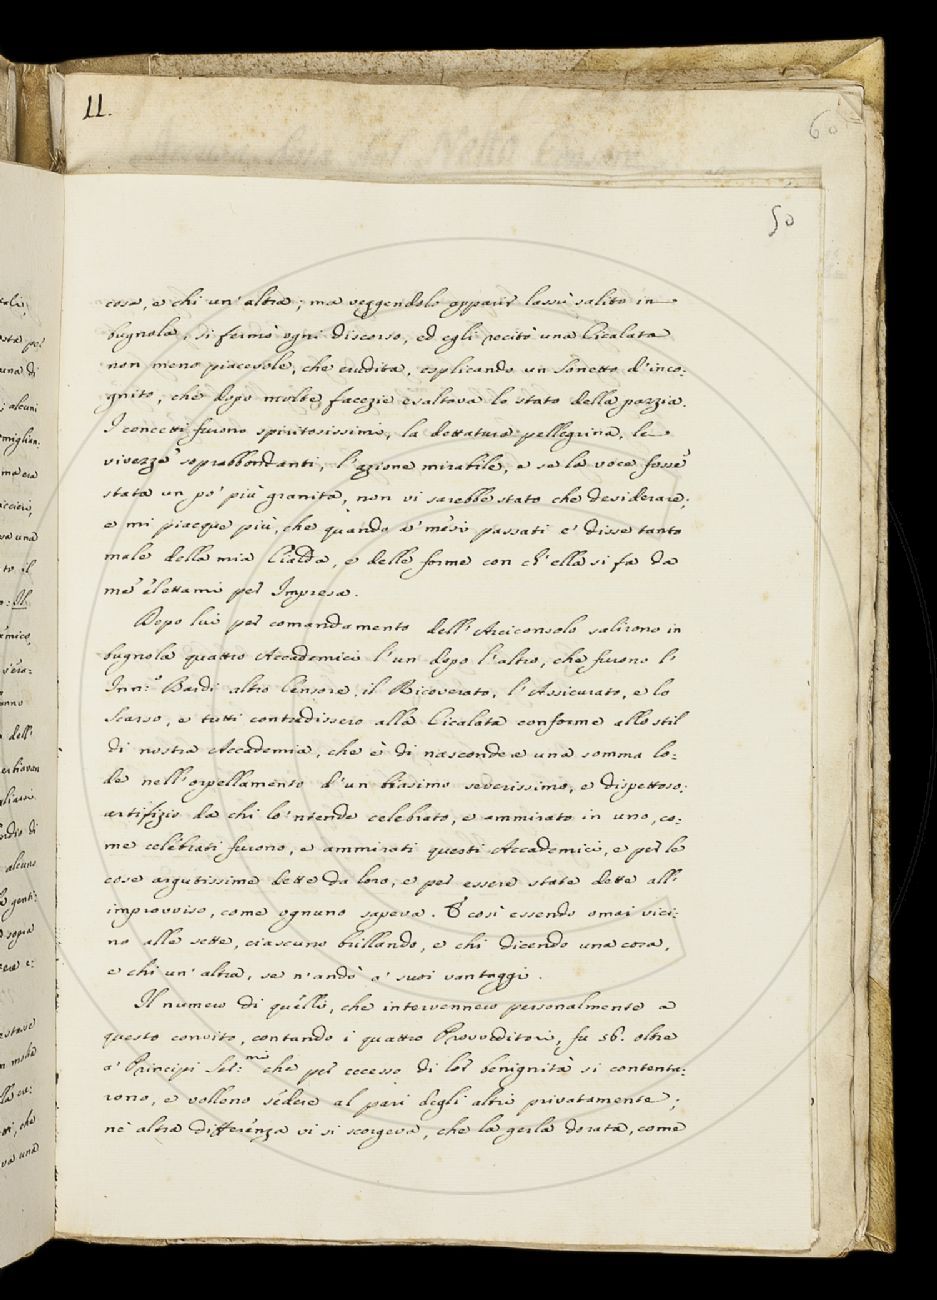 11.
60
50
cosa, e chi un' altra; ma veggendolo apparir lassù salito in
bugnola, si fermò ogni discorso, ed egli recitò una Cicalata
non meno piacevole, che erudita, esplicando un sonetto d'inco:
gnito, che dopo molte facezie esaltava lo stato della pazzia.
I concetti furono spiritosissimi, la dettatura pellegrina, le
vivezze soprabbondanti, l'azione mirabile, e se la voce fosse
stata un po' più granita, non vi sarebbe stato che desiderare;
e mi piacque più, che quando a' mesi passati e' disse tanto
male della mia Cialda, e delle forme con ch' ella si fa da
me elettami per Impresa.
Dopo lui per comandamento dell' Arciconsolo salirono in
bugnola quattro Accademici l'un dopo l'altro, che furono l'
Inn:º Bardi altro Censore, il Ricoverato, l'Assicurato, e lo
Scarso, e tutti contradissero alla Cicalata conforme allo stil
di nostra Accademia, che è di nascondere una somma lo:
de nell' orpellamento d'un biasimo severissimo, e dispettoso:
artifizio da chi lo 'ntende celebrato, e ammirato in uno, co:
me celebrati furono, e ammirati questi Accademici, e per le
cose argutissime dette da loro, e per essere state dette all'
improvviso, come ognuno sapeva. E così essendo omai vici:
no alle sette, ciascuno brillando, e chi dicendo una cosa,
e chi un' altra, se n'andò a' suoi vantaggi.
Il numero di quelli, che intervennero personalmente a
questo convito, contando i quattro Provveditori, fu 56. oltre
a' Principi Ser:mi che per eccesso di lor benignità si contenta:
rono, e vollono sedere al pari degli altri privatamente;
nè altra differenza vi si scorgeva, che la gerla dorata, come